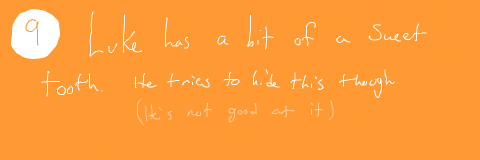 9 Luke has a bit of a sweet
tooth. He tries to hide this though
(He's not good at it)